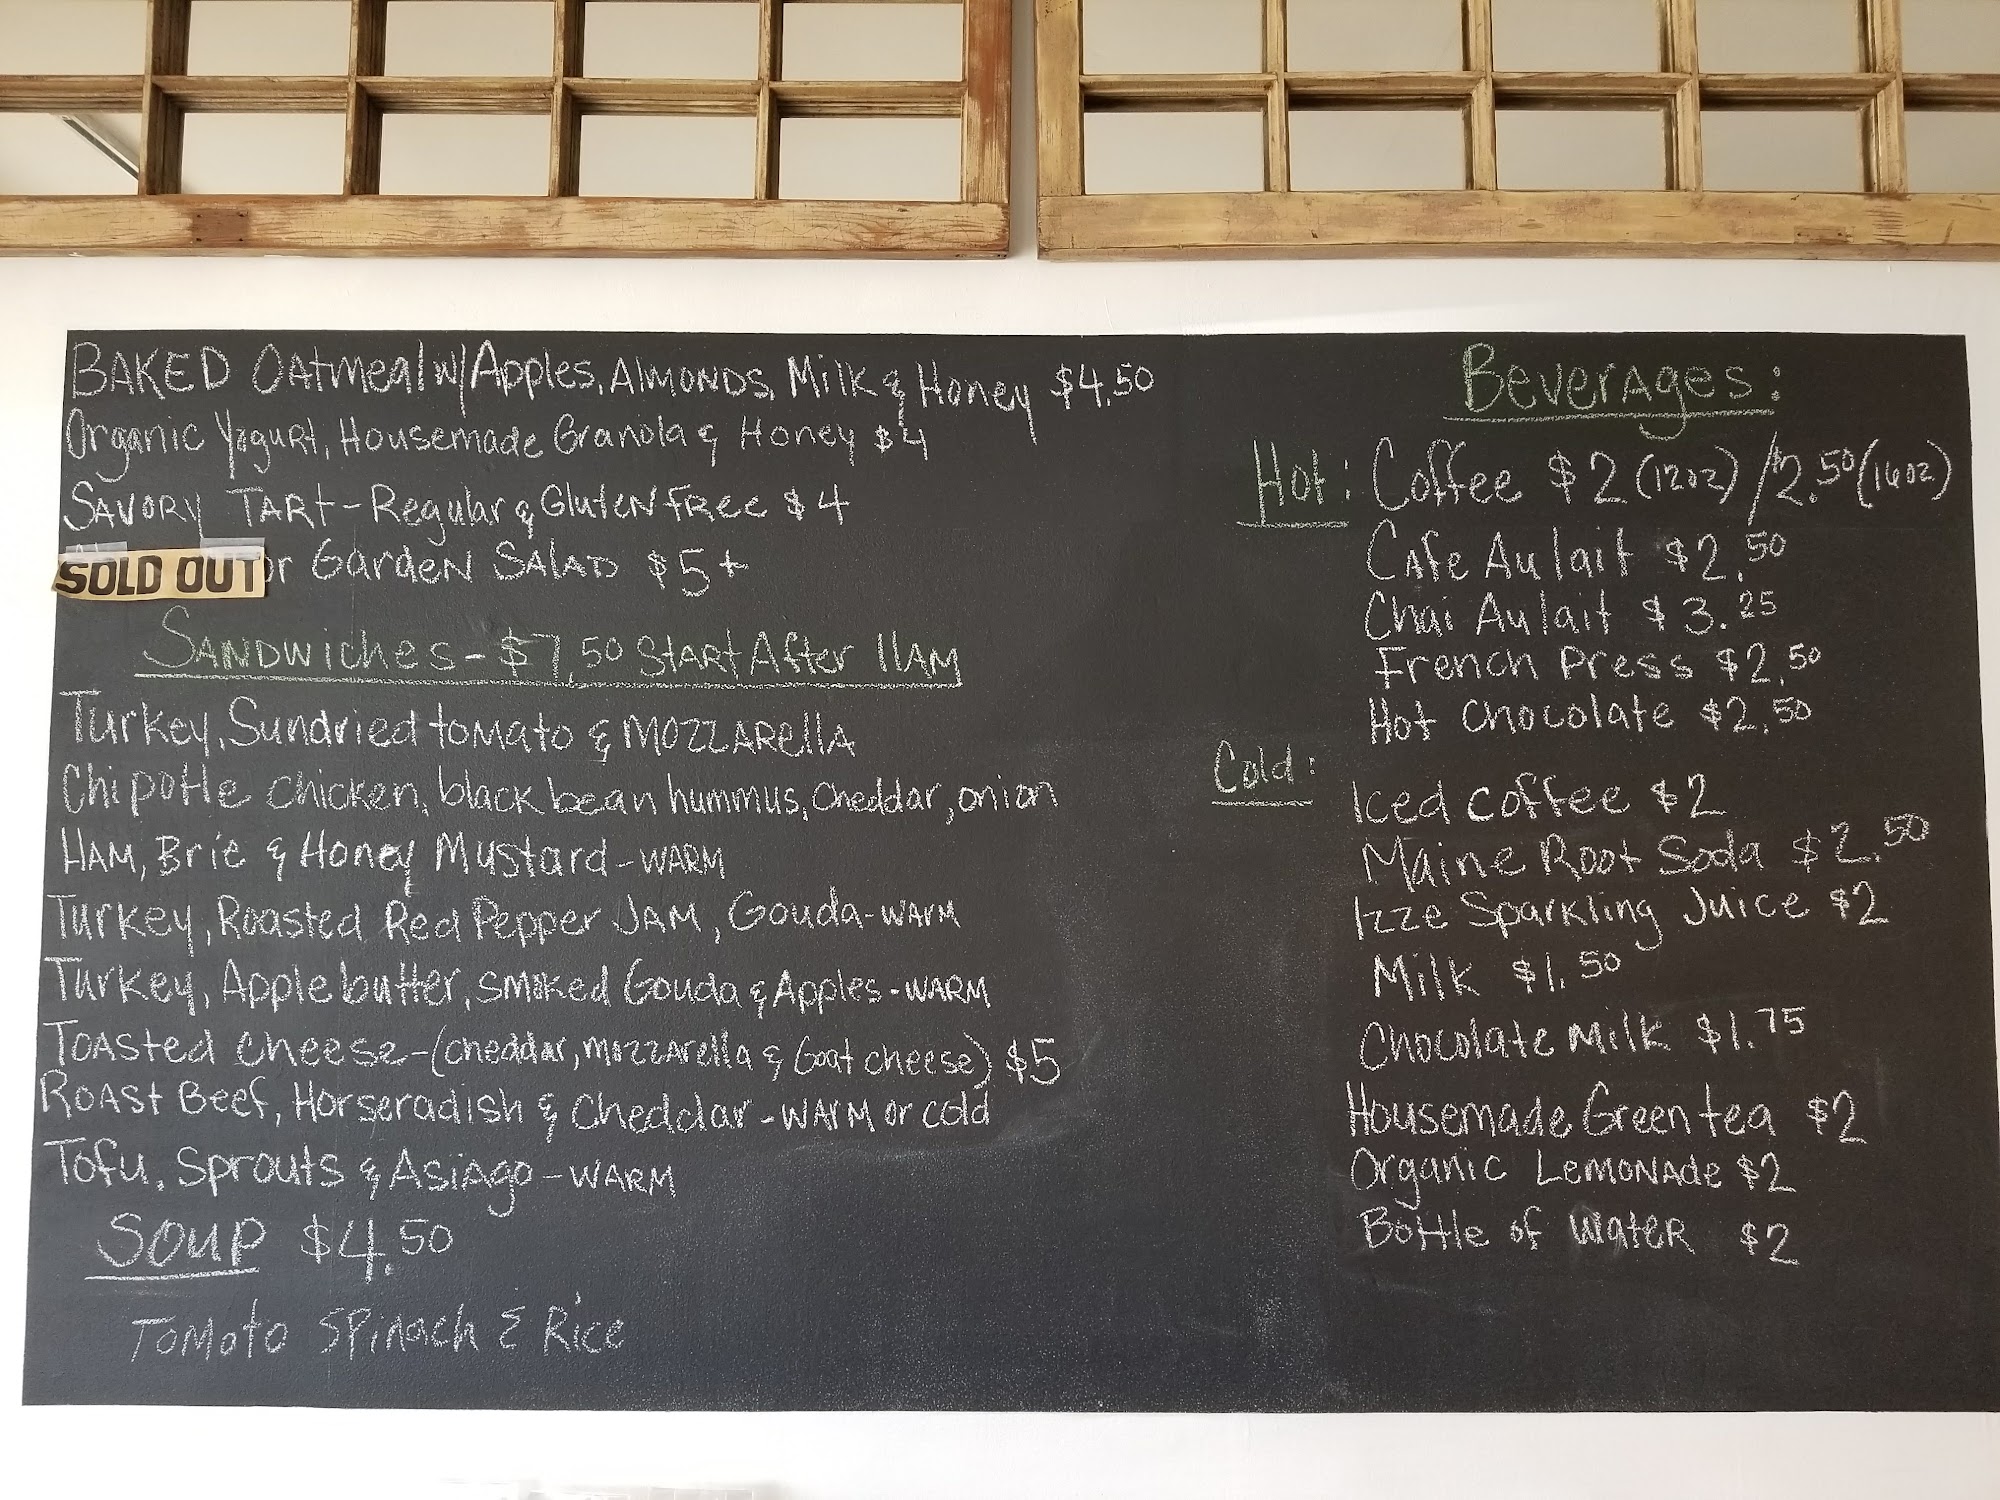 BAKED Oatmeal w/ Apples, Almonds, Milk & Honey $4.50
Organic Yogurt, Housemade Granola & Honey $4
Savory Tart - Regular & Gluten Free $4
SOLD OUT or Garden Salad $5+
Sandwiches - $7.50 Start After 11AM
Turkey, Sundried tomato & Mozzarella
Chipotle chicken, black bean hummus, cheddar, onion
Ham, Brie & Honey Mustard - WARM
Turkey, Roasted Red Pepper Jam, Gouda - WARM
Turkey, Applebutter, smoked Gouda & Apples - WARM
Toasted cheese - (cheddar, mozzarella & Goat cheese) $5
Roast Beef, Horseradish & Cheddar - WARM or cold
Tofu, Sprouts & Asiago - WARM
Soup $4.50
Tomato Spinach & Rice
Beverages:
Hot: Coffee $2 (12oz) / $2.50 (16oz)
Cafe Au lait $2.50
Chai Au lait $3.25
French Press $2.50
Hot Chocolate $2.50
Cold:
Iced coffee $2
Maine Root Soda $2.50
Izze Sparkling Juice $2
Milk $1.50
Chocolate Milk $1.75
Housemade Green tea $2
Organic Lemonade $2
Bottle of Water $2